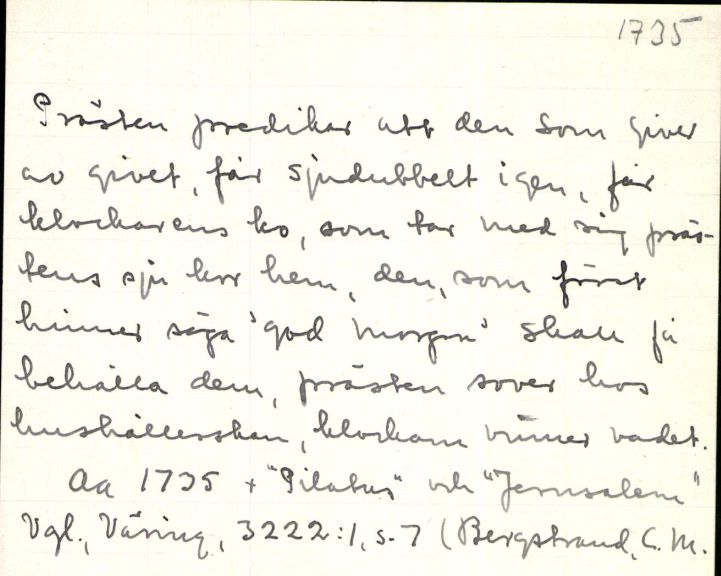 1735
Prästen predikar att den som giver
av givet, får sjudubbelt igen, får
klockarens ko, som tar med sig präs-
tens sju kor hem, den, som först
hinner säga 'god morgon' skall få
behålla dem, prästen sover hos
hushållerskan, klockarn vinner vadet.
Aa 1735 + "Pilatus" och "Jerusalem"
Vgl., Väring, 3222:1, s. 7 (Bergstrand, C. M.